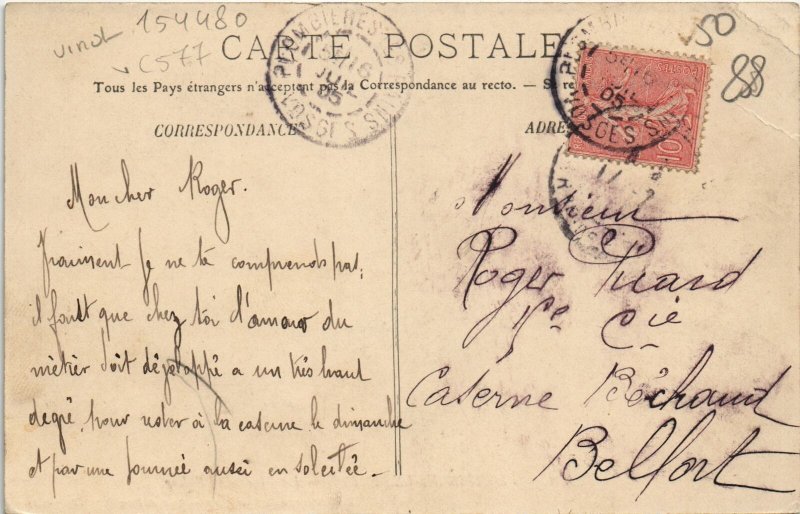 154480
vinol
C577
50
88
CARTE POSTALE
Tous les Pays étrangers n'acceptent pas la Correspondance au recto. — Se
CORRESPONDANCE
ADRE
PLOMBIÈRES
JUIL
05
VOSGES
10
Mon cher Roger.
vraiment je ne te comprends pas,
il faut que chez toi l'amour du
métier soit développé a un très haut
degré, pour rester à la caserne le dimanche
et par une journée aussi ensoleillée.
Monsieur
Roger Picard
Cie
Caserne Béchaud
Belfort